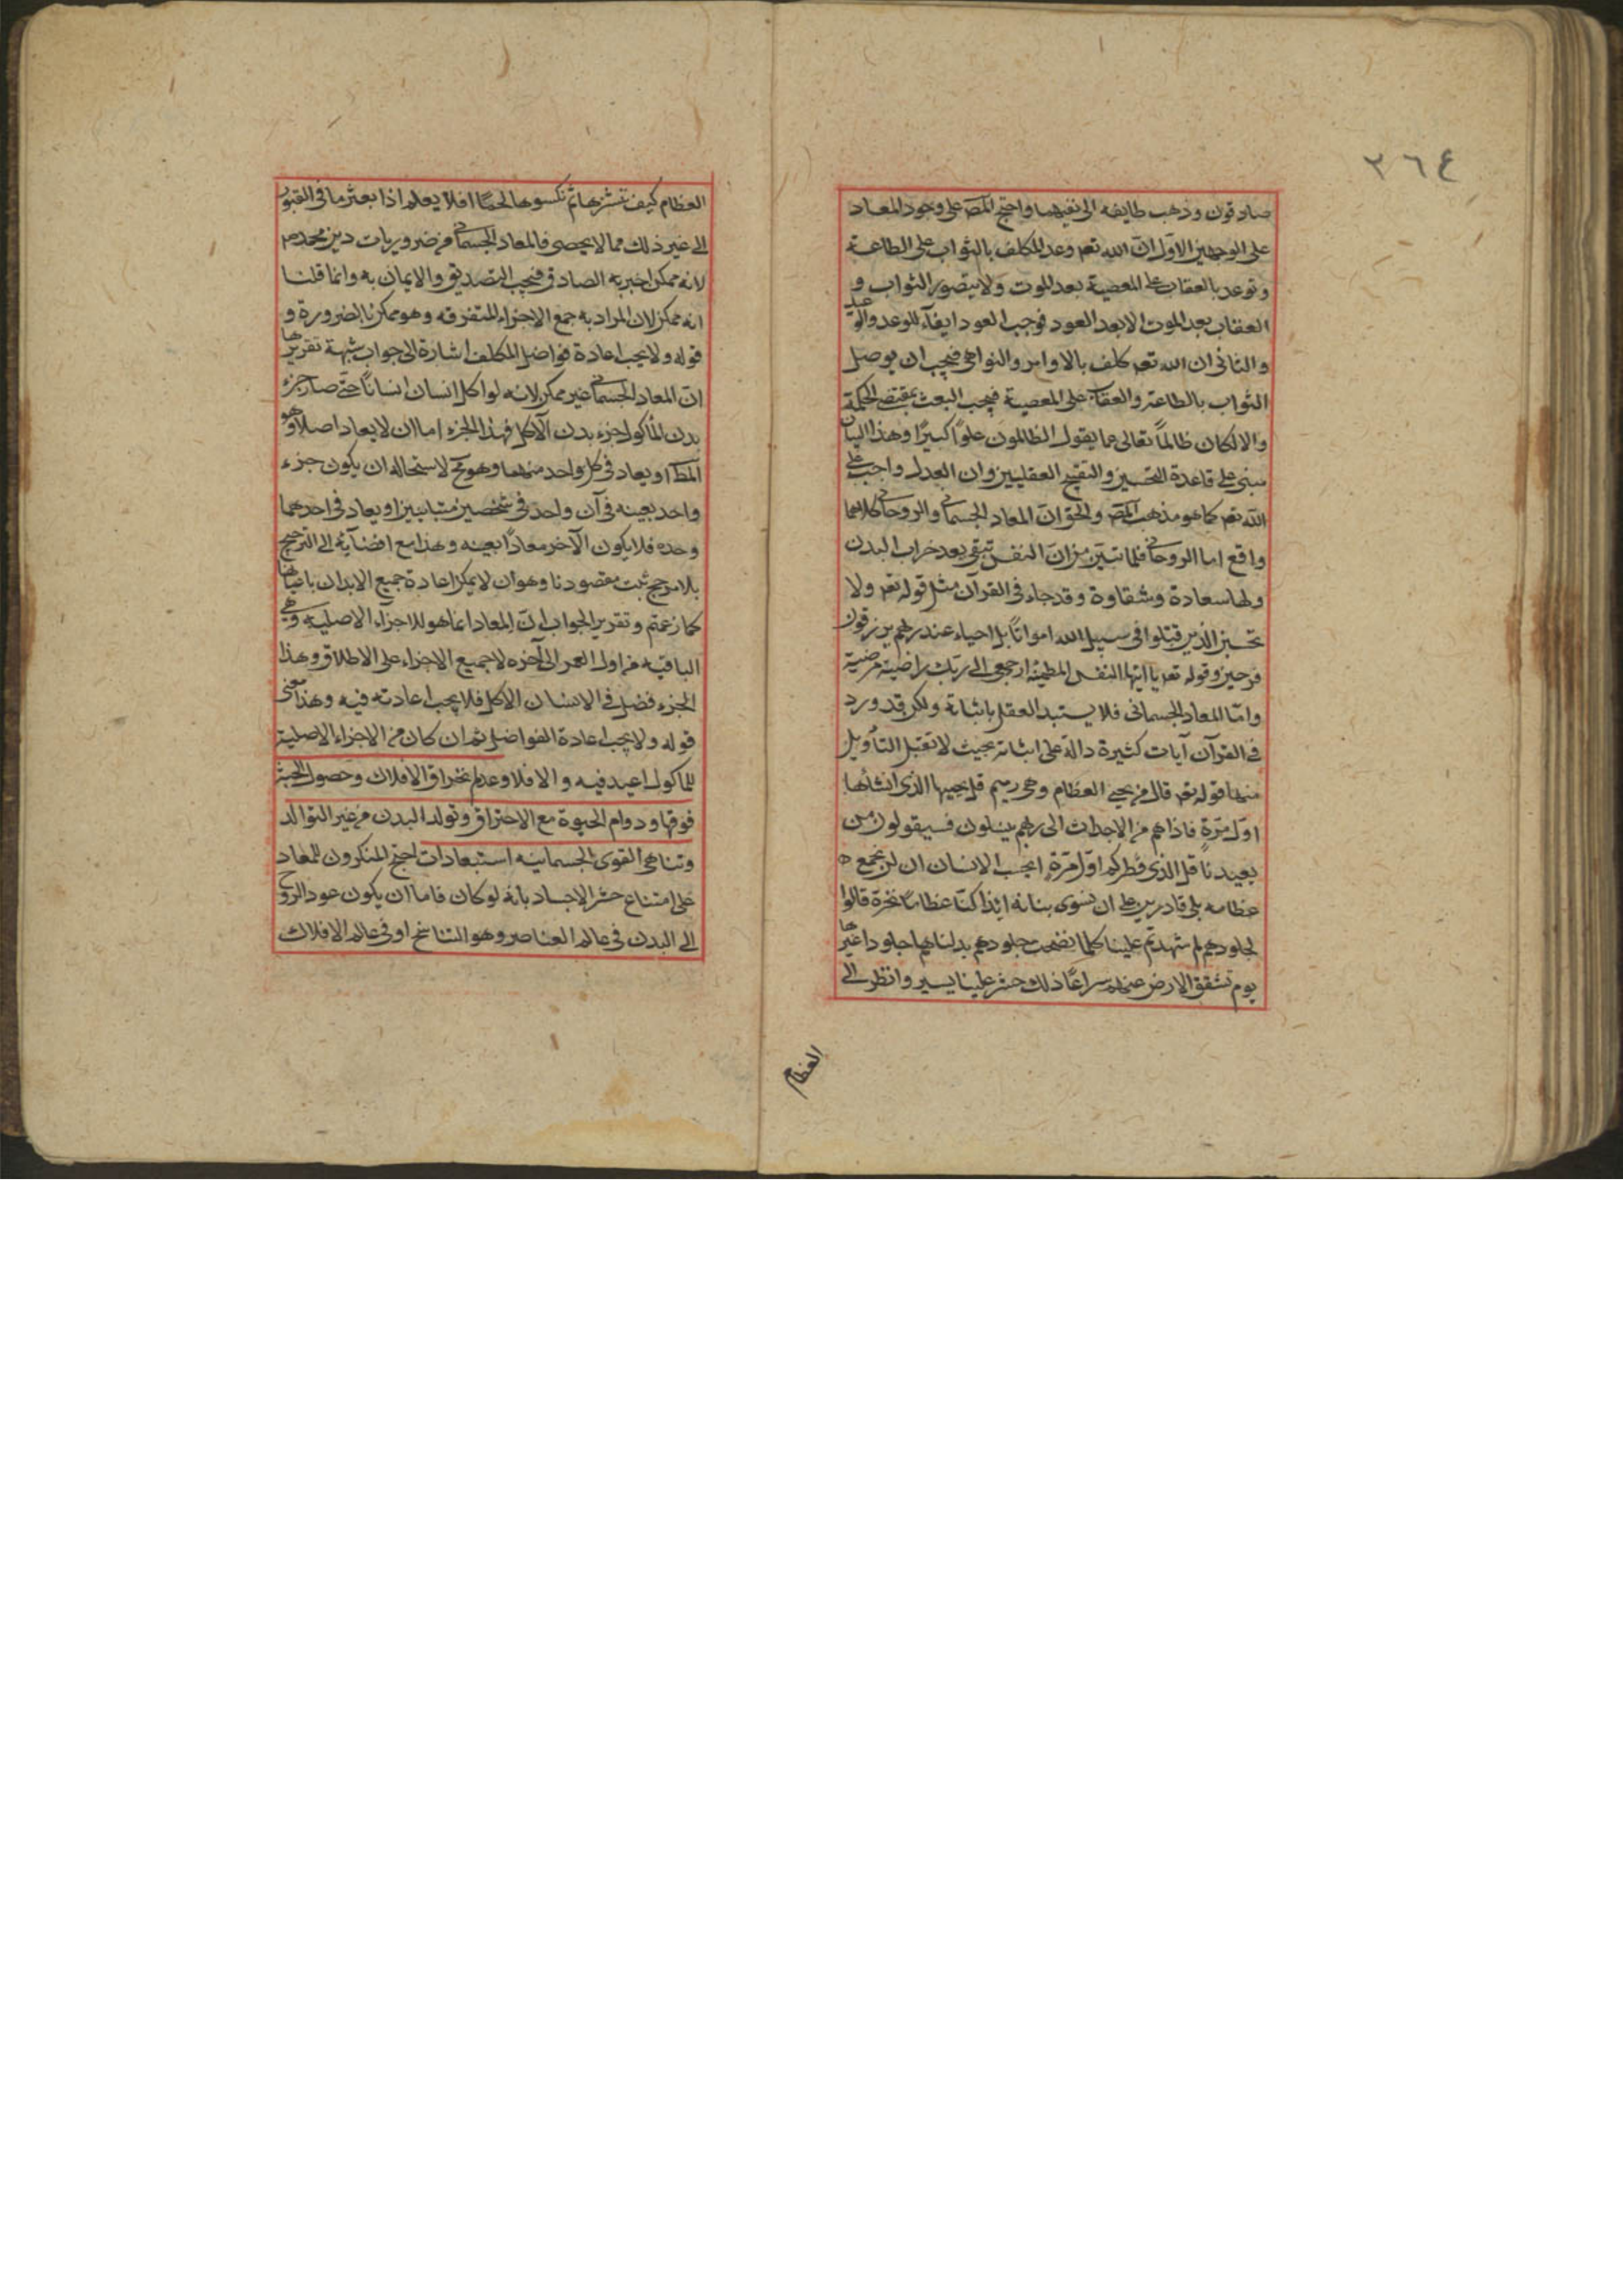 ٢٦٤
صادقون وذهب طايفه الى نفيهما واحتج المص على وجود المعاد
على الوجهين الاول ان الله تعم وعد المكلف بالثواب على الطاعة
وتوعد بالعقاب على المعصية بعد الموت ولا يتصور الثواب و
العقاب بعد الموت الا بعد العود فوجب العود ايفآء للوعد والوعيد
والثاني ان الله تعم كلف بالاوامر والنواهى فيجب ان يوصل
الثواب بالطاعة والعقاب على المعصية فيجب البعث بمقتضى الحكمة
والا لكان ظالماً تعالى عما يقول الظالمون علوّاً كبيرًا وهذا البيان
مبنى على قاعدة التحسين والتقبيح العقليين وان العدل واجب على
الله تعم كما هو مذهب المص والحق ان المعاد الجسمانى والروحانى كلاهما
واقع اما الروحانى فلما تبيّن من ان النفس تبقى بعد خراب البدن
ولها سعادة وشقاوة وقد جاء فى القرآن مثل قوله تعم ولا
تحسبن الذين قتلوا فى سبيل الله امواتاً بل احياء عند ربهم يرزقون
فرحين وقوله تعم يا ايتها النفس المطمئنة ارجعى الى ربك راضية مرضية
وامّا المعاد الجسمانى فلا يستبد العقل باثباته ولكن قد ورد
فى القرآن آيات كثيرة دالة على اثباته بحيث لا تقبل التأويل
منها قوله تعم قال من يحيى العظام وهى رميم قل يحييها الذى انشأها
اوّل مرّةٍ فاذا هم من الاجداث الى ربهم ينسلون فسيقولون من
يعيدنا قل الذى فطركم اوّل مرّةٍ ايحسب الانسان ان لن نجمع
عظامه بلى قادرين على ان نسوى بنانه ائذا كنّا عظاماً نخرة قالوا
لجلودهم لم شهدتم علينا كلما نضجت جلودهم بدلناهم جلودا غيرها
يوم تشقق الارض عنهم سراعًا ذلك حشر علينا يسير وانظر الى
العظام
العظام كيف ننشزها ثم نكسوها لحمًا افلا يعلم اذا بعثر ما فى القبور
الى غير ذلك مما لا يحصى فالمعاد الجسمانى من ضروريات دين محمد ص
لانه ممكن اخبر به الصادق فيجب التصديق والايمان به وانما قلنا
انه ممكن لان المراد به جمع الاجزاء المتفرقه وهو ممكن بالضرورة و
قوله ولا يجب اعادة فواضل المكلف اشارة الى جواب شبهة تقريرها
ان المعاد الجسمانى غير ممكن لانه لو اكل انسان انساناً حتى صار جزء
بدن المأكول جزء بدن الآكل فهذا الجزء اما ان لا يعاد اصلاً وهو
المط او يعاد فى كل واحد منهما وهو مح لاستحاله ان يكون جزء
واحد بعينه فى آن واحد فى شخصين متباينين او يعاد فى احدهما
وحده فلا يكون الآخر معادًا بعينه وهذا مع افضآئه الى الترجيح
بلا مرجح ثبت مقصودنا وهو ان لا يمكن اعادة جميع الابدان باعيانها
كما زعمتم وتقرير الجواب ان المعاد انما هو للاجزآء الاصليه وهى
الباقيه من اول العمر الى آخره لا جميع الاجزاء على الاطلاق وهذا
الجزء فضل فى الانسان الاكل فلا يجب اعادته فيه وهذا معنى
قوله ولا يجب اعادة الفواضل ثم ان كان من الاجزاء الاصلية
للماكول اعيد فيه والا فلا وعدم انخراق الافلاك وحصول الجنة
فوقها ودوام الحيوة مع الاحتراق وتولد البدن من غير التوالد
وتناهى القوى الجسمانيه استبعادات احتج المنكرون للمعاد
على امتناع حشر الاجساد بانه لو كان فاما ان يكون عود الروح
الى البدن فى عالم العناصر وهو التناسخ او فى عالم الافلاك